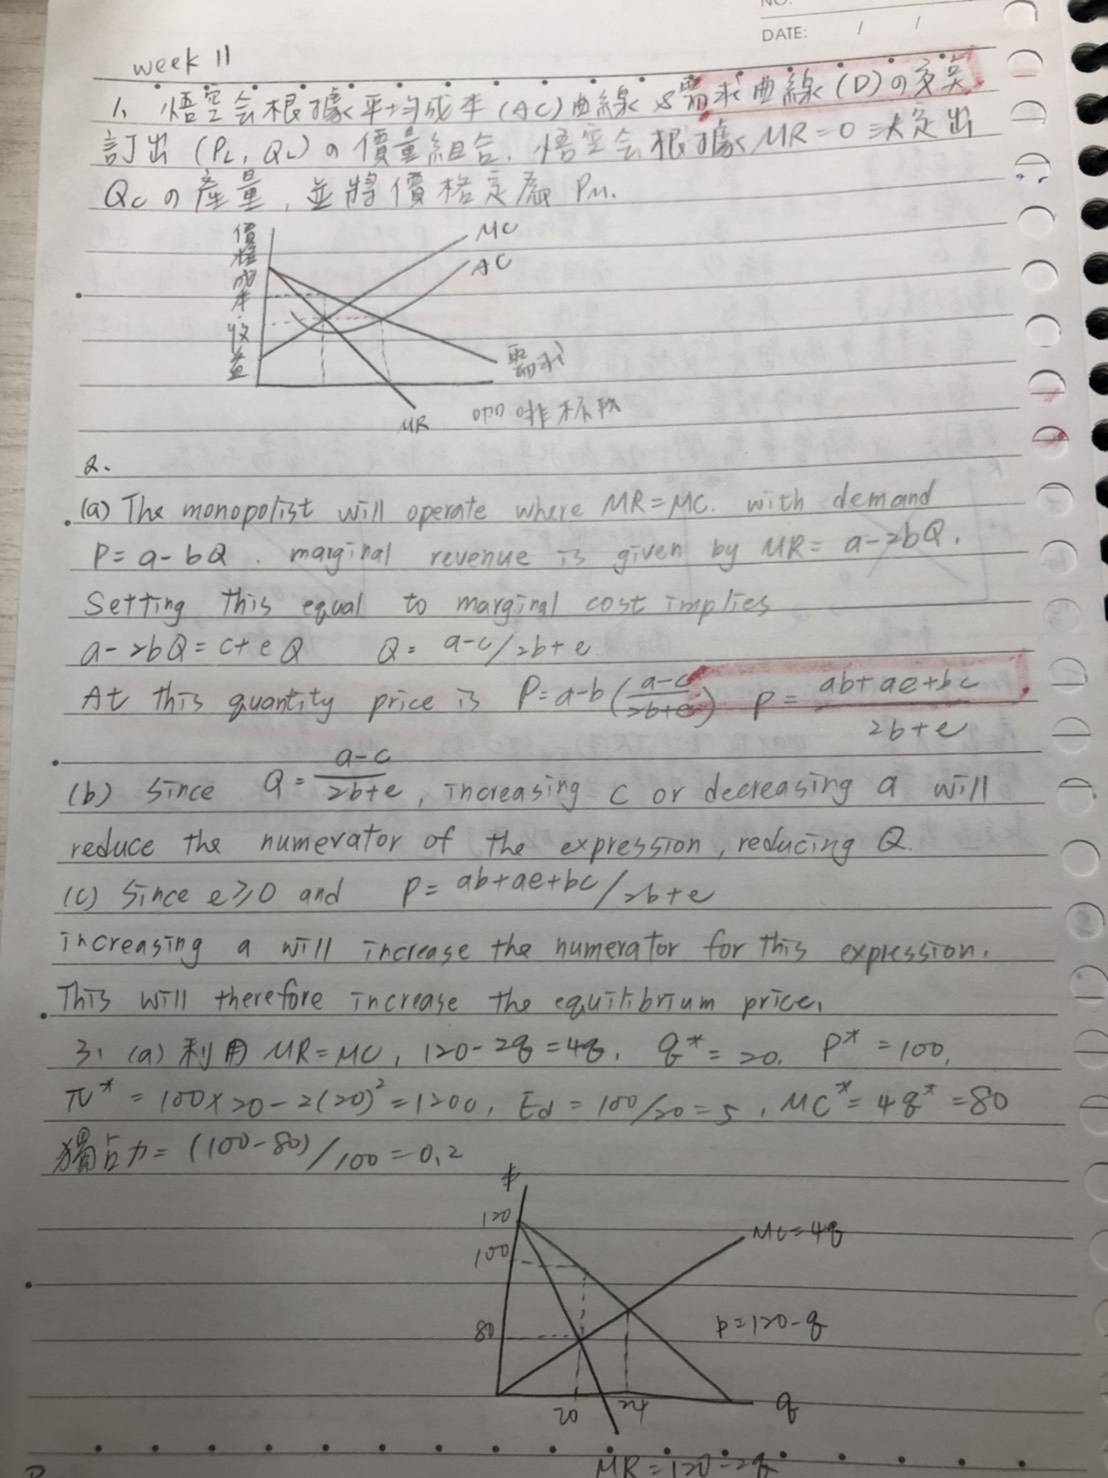 NO.
DATE: / /
week 11
1. 悟空会根據平均成本(AC)曲線与需求曲線(D)の交美
訂出(PL, QL)の價量組合. 悟空会根據MR=0決定出
Qcの產量,並將價格定為 Pm.
價格成本.收益
MC
AC
需求
MR
咖啡杯數
2.
(a) The monopolist will operate where MR=MC. with demand
P=a-bQ. marginal revenue is given by MR= a-2bQ.
Setting this equal to marginal cost implies
a-2bQ=c+eQ Q= a-c/2b+e
At this quantity price is P=a-b(a-c/2b+e) P= ab+ae+bc/2b+e
(b) Since Q= a-c/2b+e, increasing c or decreasing a will
reduce the numerator of the expression, reducing Q.
(c) Since e≥0 and P= ab+ae+bc/2b+e
increasing a will increase the numerator for this expression.
This will therefore increase the equilibrium price.
3. (a) 利用MR=MC, 120-2q=4q. q*=20. P*=100.
π*=100×20-2(20)²=1200, Ed=100/20=5, MC*=4q*=80
獨占力=(100-80)/100=0.2
p
120
100
80
MC=4q
p=120-q
20
24
q
MR=120-2q